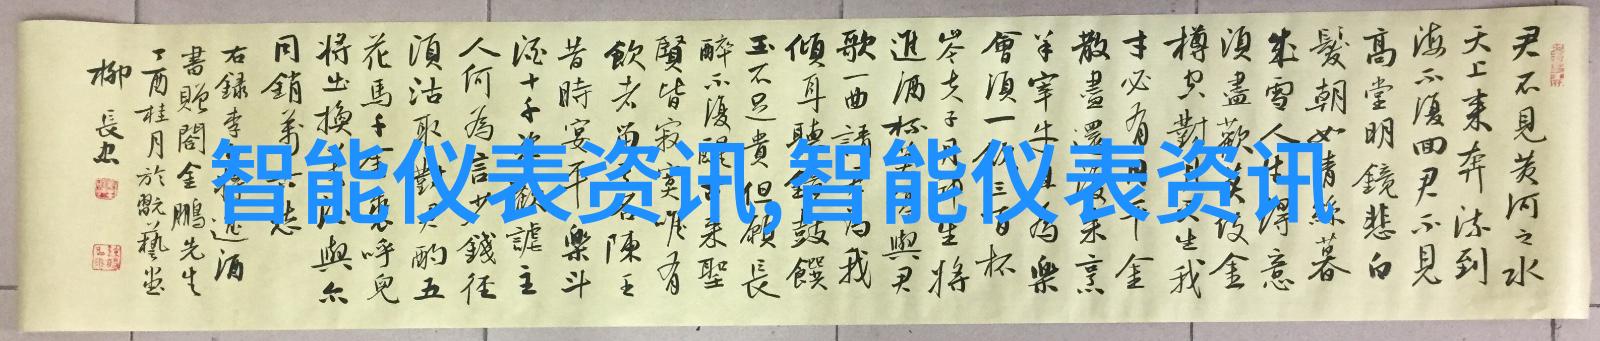 君不見黄河之水
天上来奔流到
海不復回君不見
高堂明鏡悲白
髮朝如青絲暮
成雪人生得意
須盡歡莫使金
樽空對月天生我
才必有用千金
散盡還復来烹
羊宰牛且為樂
會須一飲三百杯
岑夫子丹邱生將
進酒杯莫停與君
歌一曲請君為我
傾耳聽鐘鼓饌
玉不足貴但願長
醉不復醒古来聖
賢皆寂寞唯有
飲者留其名陳王
昔時宴平樂斗
酒十千恣歡謔主
人何為言少錢徑
須沽取對君酌五
花馬千金裘呼兒
將出換美酒與尔
同銷萬古愁
右錄李白將進酒
書贈閻金鵬先生
丁酉桂月於翫藝堂
柳長忠
智能仪表资讯,智能仪表资讯